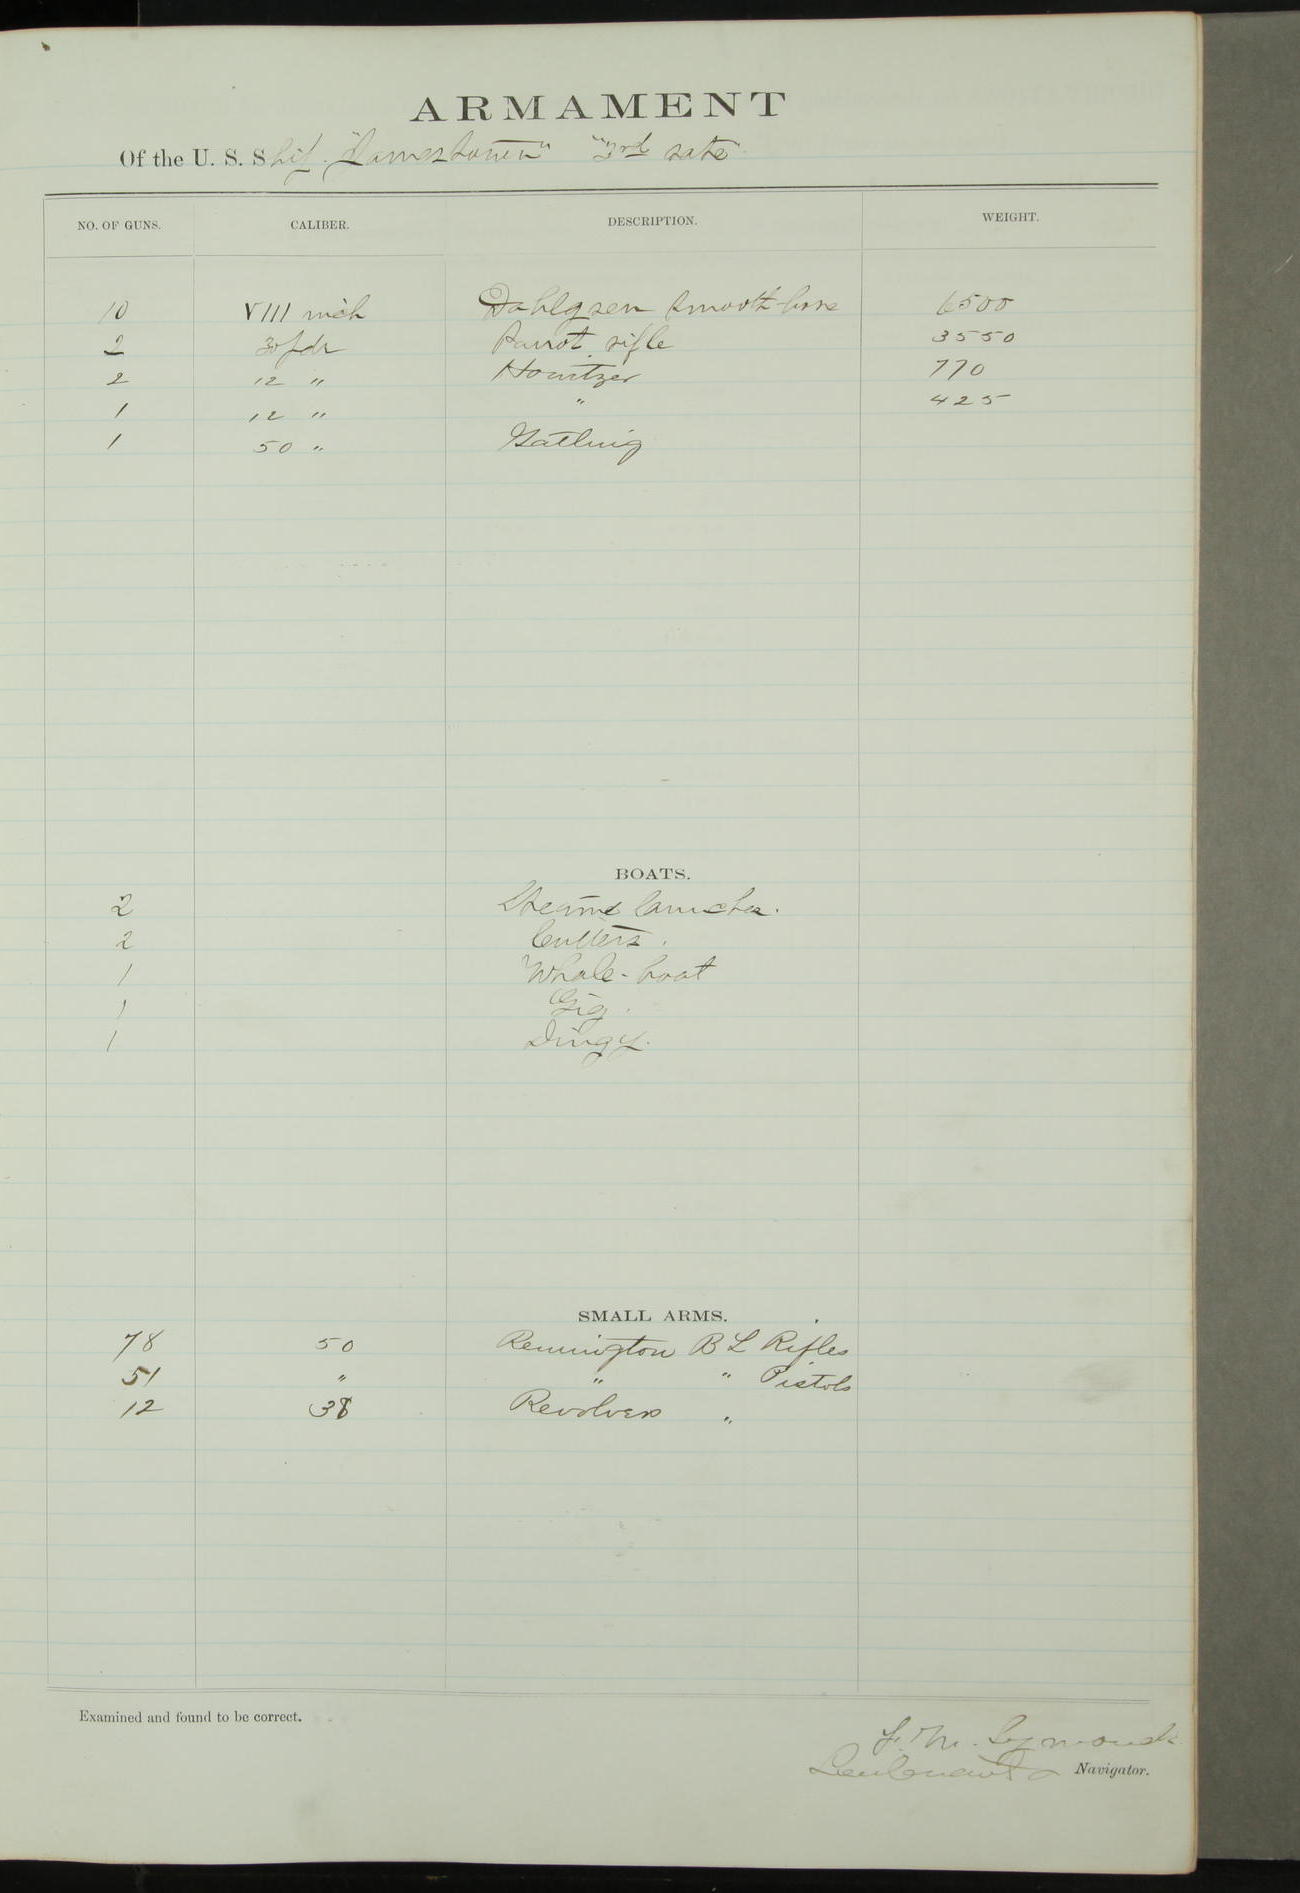 ARMAMENT
Of the U. S. Ship "Jamestown" "3rd rate"
NO. OF GUNS. CALIBER. DESCRIPTION. WEIGHT.
10 VIII inch Dahlgren Smooth-bore 6500
2 30 pdr Parrot rifle 3550
2 12 " Howitzer 770
1 12 " " 425
1 50 " Gatling
BOATS.
2 Steam launches.
2 Cutters.
1 Whale-boat
1 Gig.
1 Dingy.
SMALL ARMS.
78 50 Remington B L Rifles
51 " " " Pistols
12 38 Revolvers "
Examined and found to be correct.
F. M. Symonds
Lieutenant & Navigator.